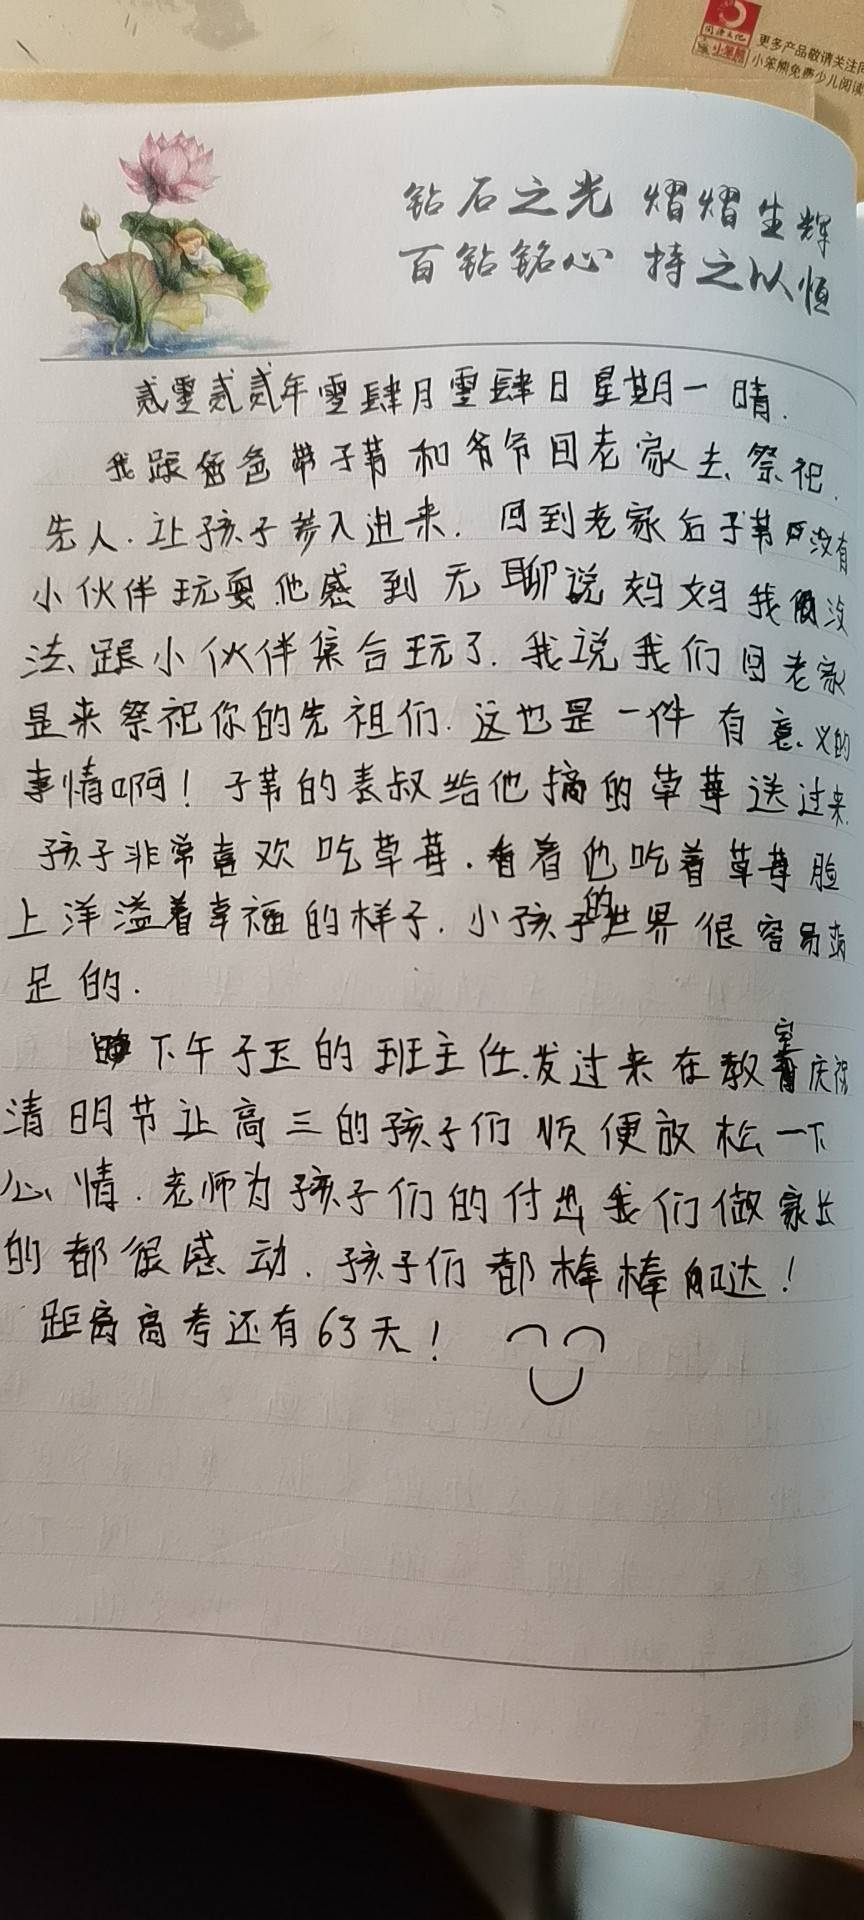 更多产品敬请关注
小笨熊免费少儿阅读
小笨熊
钻石之光 熠熠生辉
百钻铭心 持之以恒
贰零贰贰年零肆月零肆日星期一 晴.
我跟爸爸带子苇和爷爷回老家去祭祀.
先人.让孩子参入进来.回到老家后子苇没有
小伙伴玩耍.他感到无聊说妈妈我没
法跟小伙伴集合玩了.我说我们回老家
是来祭祀你的先祖们.这也是一件有意义的
事情啊!子苇的表叔给他摘的草莓送过来.
孩子非常喜欢吃草莓.看着他吃着草莓脸
上洋溢着幸福的样子.小孩子的世界很容易满
足的.
下午子玉的班主任.发过来在教室庆祝
清明节让高三的孩子们顺便放松一下
心情.老师为孩子们的付出我们做家长
的都很感动.孩子们都棒棒哒!
距离高考还有63天!